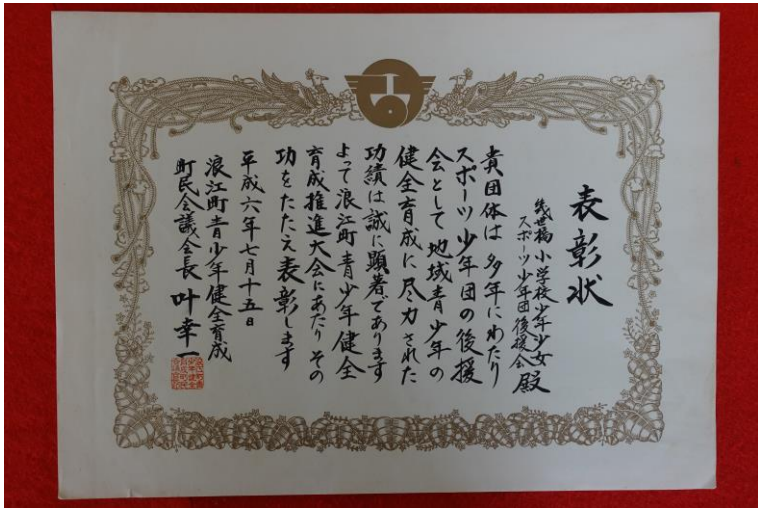 表彰状
幾世橋小学校少年少女
スポーツ少年団後援会 殿
貴団体は多年にわたり
スポーツ少年団の後援
会として地域青少年の
健全育成に尽力された
功績は誠に顕著であります
よって浪江町青少年健全
育成推進大会にあたりその
功をたたえ表彰します
平成六年七月十五日
浪江町青少年健全育成
町民会議会長 叶幸一